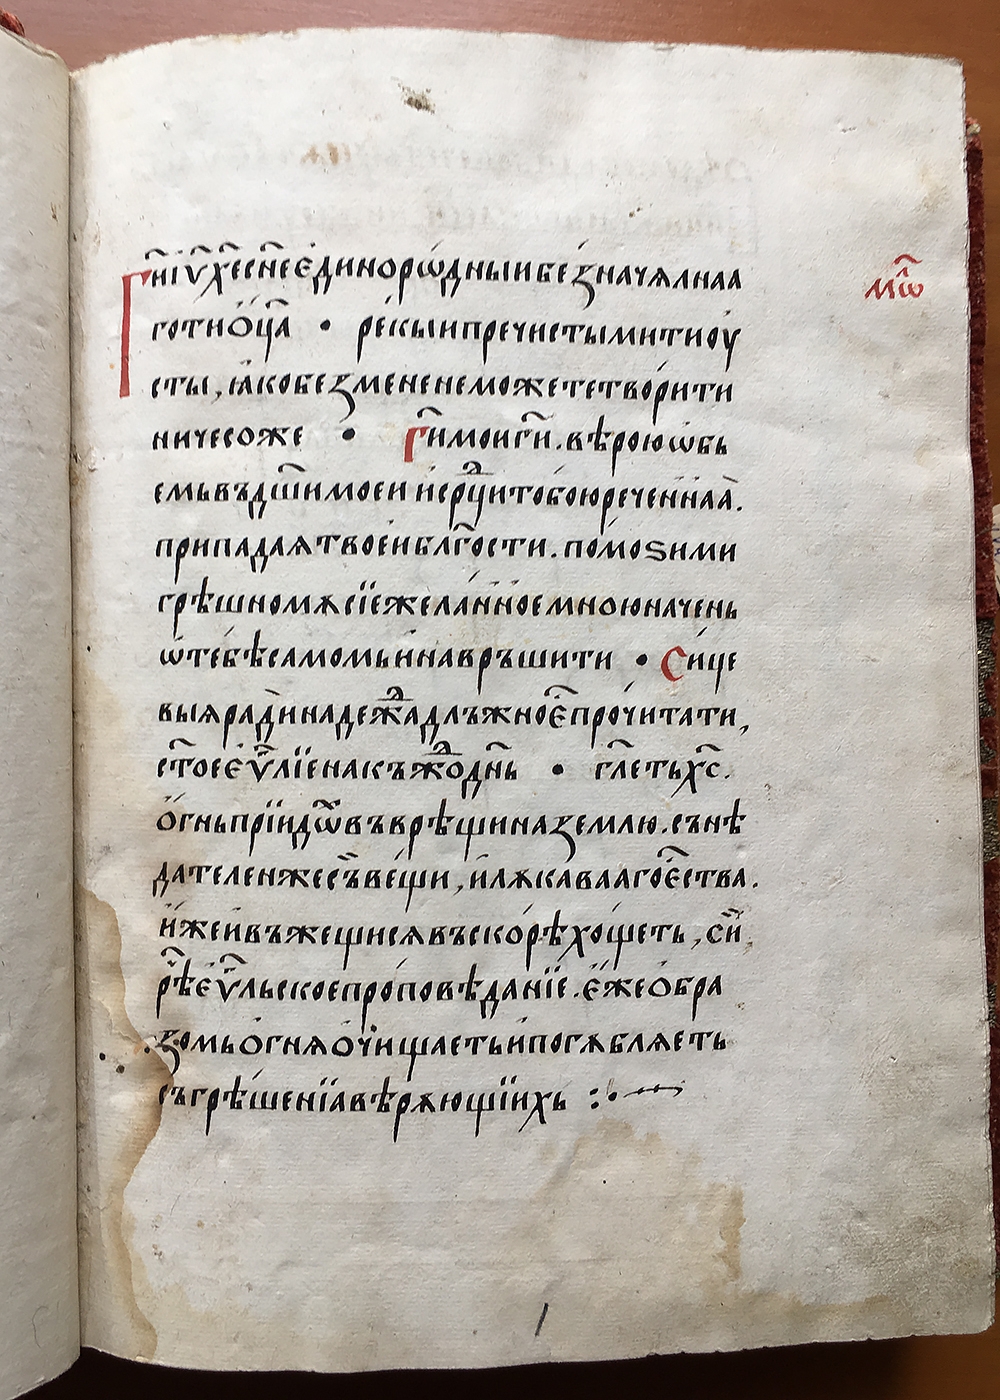 Гн҃і ѵ҃ х҃е сн҃е є҆динорѡ́дныи безначѧлнаа
готи ѻ҆ц҃а • рекыи пречистыми ти ѹ
сты, ꙗ҆ко без мене не можете твори́ти
ничесоже • Гі҃ мои гі҃. вѣрою ѡбь
емь въ дш҃и моеи и҆ срд҃ци тобою реченнаа̀.
припадаѧ твоеи блг҃ости. помоѕи ми
грѣшномѧ сїе желанное мною начень
ѡ҆ тебѣ самомь и҆ навръшити • Сице
выѧ ра́ди надежда длъжно є҆́ прочитати,
ст҃ое є҆ѵ҃лїе на къждо дн҃ь • гл҃еть хс҃.
ѻ҆́гнь прїидѡ́ въврѣщи на землю. сънѣ
дателен же съ вещи, и҆ лѧкаваа гоє҆ства.
и҆же и҆ въжещисѧ въскорѣ хощеть, си́
рѣ́ є҆ѵ҃льское проповѣданїе. є҆́же ѻбра
зомь ѻ҆гнѧ ѻ҆чищаеть и҆ погѧблѧеть
съгрѣшенїа вѣрѧющїихь :•
мл҃ѡ